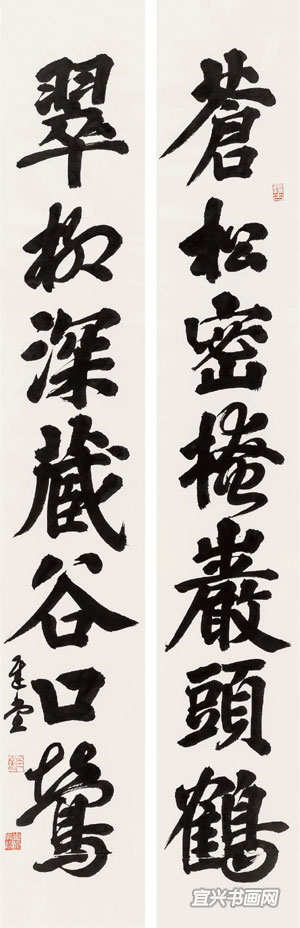 蒼松密掩巖頭鶴
翠柳深藏谷口鶯
宜兴书画网